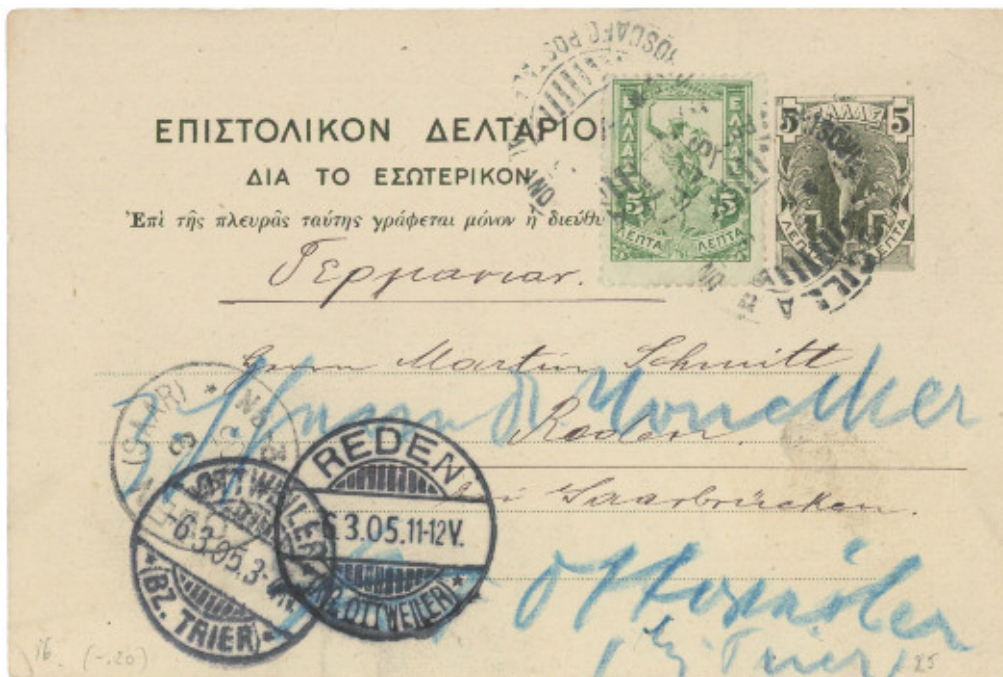 ΕΠΙΣΤΟΛΙΚΟΝ ΔΕΛΤΑΡΙΟ
ΔΙΑ ΤΟ ΕΣΩΤΕΡΙΚΟΝ
Ἐπὶ τῆς πλευρᾶς ταύτης γράφεται μόνον ἡ διεύθυ
ΕΛΛΑΣ ΕΛΛΑΣ
5 5
ΛΕΠΤΑ ΛΕΠΤΑ
5 ΕΛΛΑΣ 5
ΛΕΠΤΑ ΛΕΠΤΑ
Γερμανιαν.
Herrn Martin Schmitt
Roden.
bei Saarbrücken.
(SAAR)
REDEN
6.3.05.11-12V.
(KR. OTTWEILER)
OTTWEILER
-6.3.05.3-
(BZ. TRIER)
Trier
16. (-.20)
25